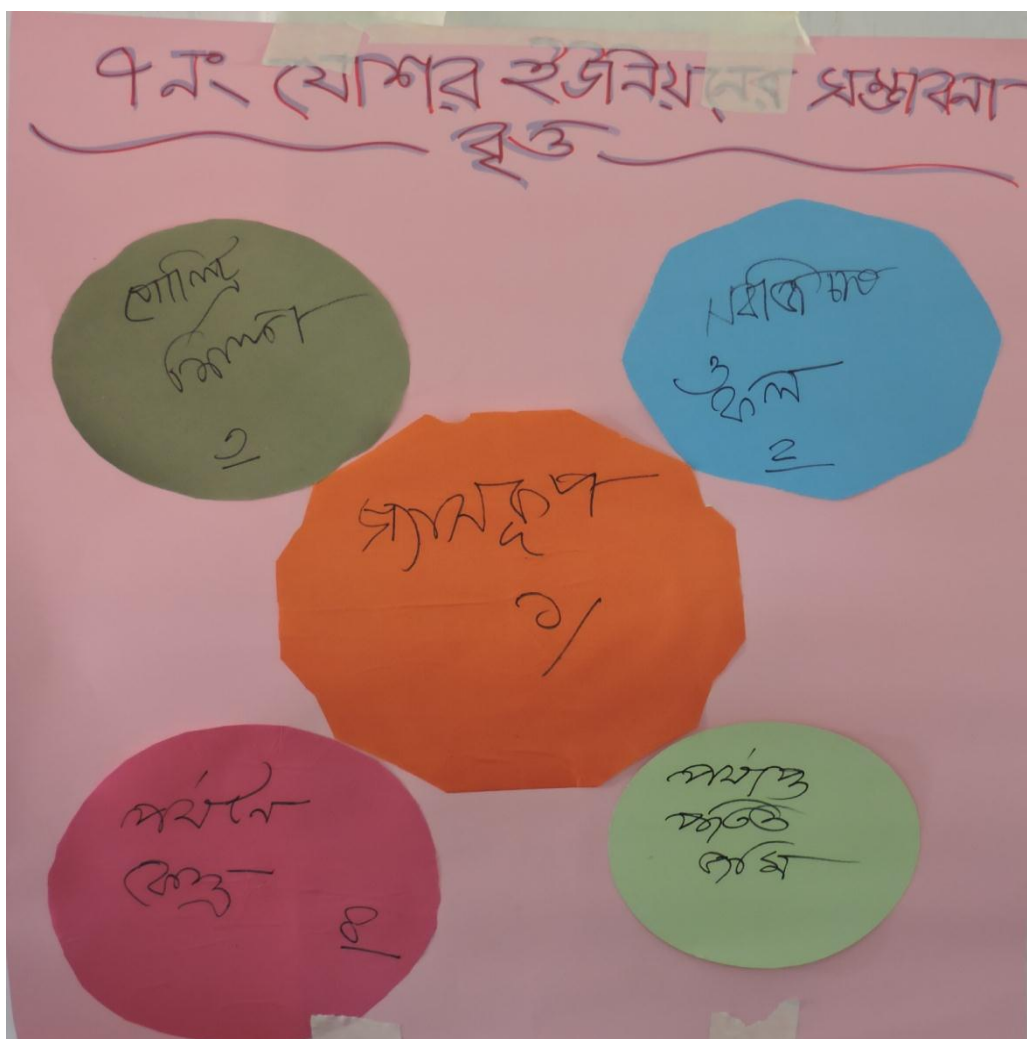 ৭ নং যোশর ইউনিয়নের সম্ভাবনা
বৃত্ত
পোল্ট্রি
শিল্প
৩
সবজি চাষ
ও ফল
২
গ্যাসকূপ
১/
পর্যটন
কেন্দ্র
৪
পর্যাপ্ত
পতিত
জমি